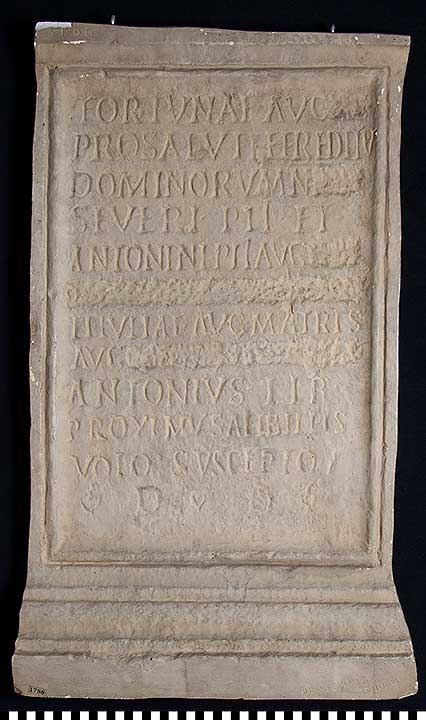 FORTVNAE AVG
PRO SALVTE ET REDITV
DOMINORVM N
SEVERI PII ET
ANTONINI PII AVG
ET IVLIAE AVG MATRIS
AVG
ANTONIVS LIB
PROXIMVS A LIBELLIS
VOTO SVSCEPTO
D D
1786